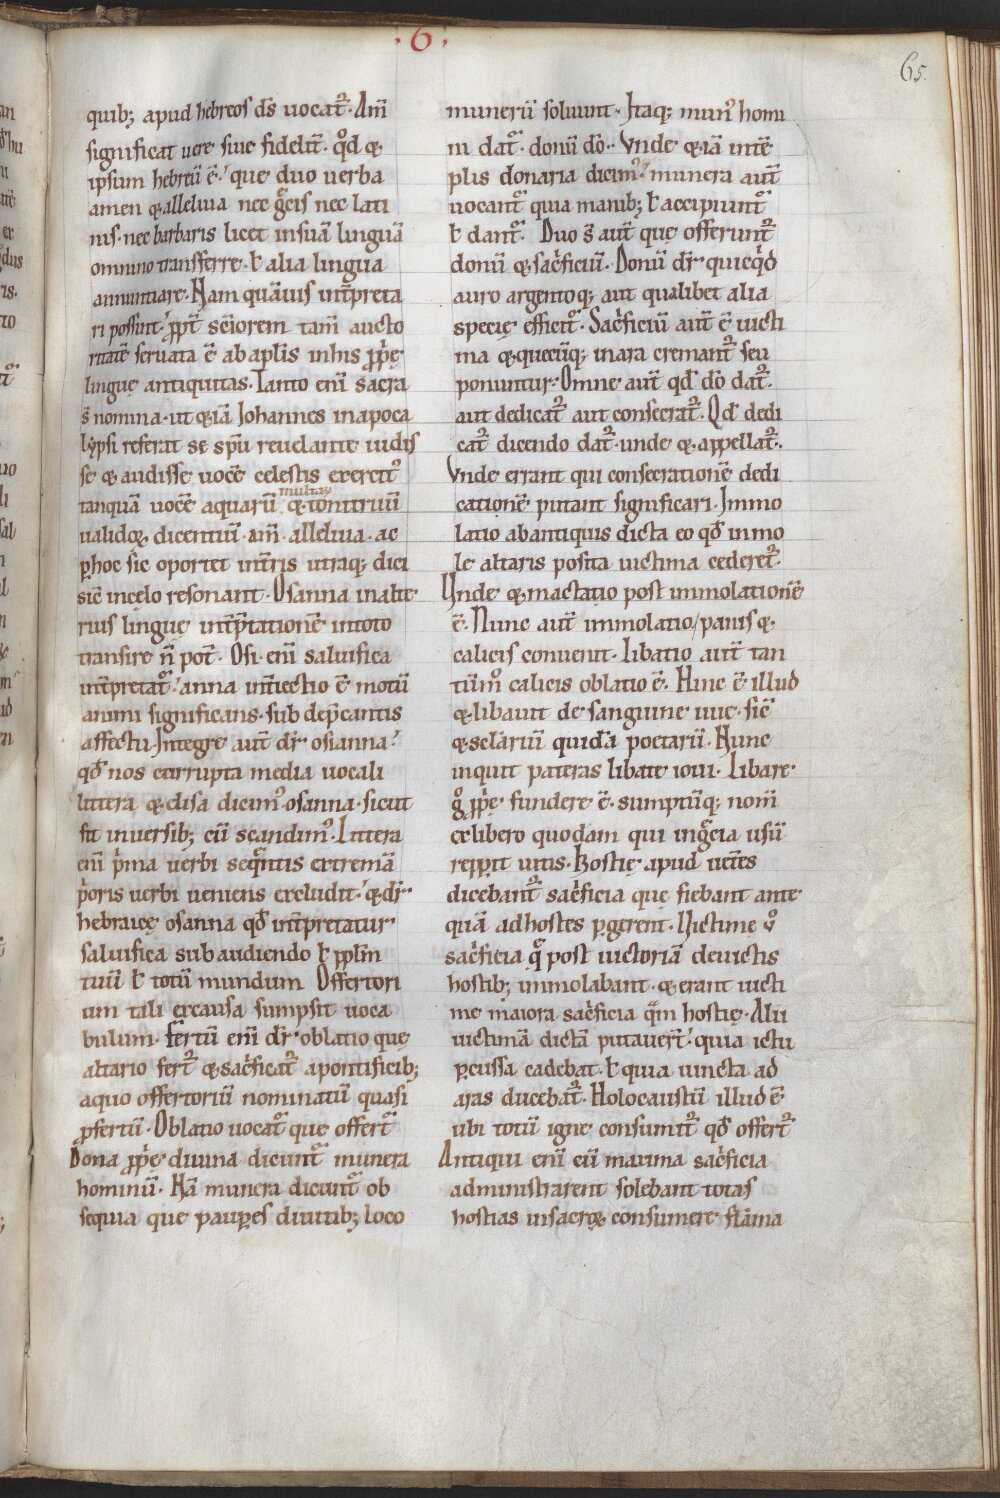 ·6·
65.
quib; apud hebreos ds̄ uocat᷑. Am̄
significat uere siue fidelit̄. qd̄ &
ipsum hebreū ē. que duo uerba
amen & alleluia nec grͣcis nec lati
nis. nec barbaris licet insuā linguā
omnino transferre. ł alia lingua
annuntiare. Nam quāuis int̄preta
ri possint. ꝓpt̄ sc̄iorem tam̄ aucto
ritatē seruata ē ab apl̄is inhis ꝓpͥę
linguę antiquitas. Tanto eni᷑ sacra
s̄ nomina. ut &iā Iohannes inapoca
lypsi referat se spū reuelante uidis
se & audisse uocē celestis exercitꝰ
tanquā uocē aquarū multarꝝ & tonitruū
ualidoꝝ. dicentiū. am̄. alleluia. ac
ꝑhoc sic oportet int̄ris utraq; dici
sic̄ incęlo resonant. Osanna inalte
rius linguę int̄p̄tationē intoto
transire n̄ pot̄. Osi. enī saluifica
int̄pretatͣ. anna int̄iectio ē motū
animi significans. sub dep̄cantis
affectu. Integre aut̄ dr̄ osianna.
qd̄ nos corrupta media uocali
littera & elisa dicimꝰ. osanna. sicut
fit inuersib; cū scandimꝰ. Littera
enī pͥma uerbi seqͣntis extremā
pͥoris uerbi ueniens excludit. & dr̄
hebraicę osanna qd̄ int̄pretatur
saluifica subaudiendo ł ppl̄m
tuū ł totū mundum. Offertori
um tali excausa sumpsit uoca
bulum. fertū enī dr̄ oblatio quę
altario fert᷑ & sacͥficat᷑ apontificib;
aquo offertoriū nominatū quasi
ꝓfertū. Oblatio uocatͣ que offertͣ
Dona ꝓpͥę diuina dicuntͣ munera
hominū. Nā munera dicuntͣ ob
sequia que pauꝑes diuitib; loco
munerū soluunt. Itaq; munꝰ homi
ni datͣ. donū dō. Vnde &iā intē
plis donaria dicimꝰ. munera aut̄
uocantͣ quia manib; ł accipiuntͣ
ł dantͣ. Duo s̄ aut̄ quę offerunt᷑
donū & sacͥficiū. Donū dr̄ quicqͥd
auro argentoq; aut qualibet alia
specię efficitͣ. Sacͥficiū aut̄ ē uicti
ma & quecūq; inara cremant᷑ seu
ponuntur. Omne aut̄ qd̄ dō dat᷑.
aut dedicat᷑ aut consecrat᷑. Qd̄ dedi
cat᷑ dicendo dat᷑. unde & appellat᷑.
Vnde errant qui consecrationē dedi
cationē putant significari. Immo
latio abantiquis dicta eo qd̄ inmo
le altaris posita uictima cederet᷑.
Vnde & mactatio post immolationē
ē. Nunc aut̄ immolatio panis &
calicis conuenit. Libatio aut̄ tan
tūmͦ calicis oblatio ē. Hinc ē illud
& libauit de sanguine uue. sic̄
& sclāriū quida᷑ poetarū. Hunc
inquit pateras libate ioui. Libare
gͦ ꝓpͥę fundere ē. sumptūq; nom̄
exlibero quodam qui ingrͣcia usū
reꝑꝑit uitis. Hostię apud uet̄es
dicebant᷑ sacͥficia quę fiebant ante
quā adhostes ꝑgerent. Uictime uͦ
sacͥficia qͣ post uictoriā deuictis
hostib; immolabant. & erant uicti
me maiora sacͥficia qͣm hostię. Alii
uictimā dictā putauer̄t. quia ictu
ꝑcussa cadebat. ł quia uincta ad
aras ducebat᷑. Holocaustū illud ē
ubi totū igne consumit᷑ qd̄ offert᷑
Antiqui enī cū maxima sacͥficia
administrarent solebant totas
hostias insacroꝝ consumere flāma